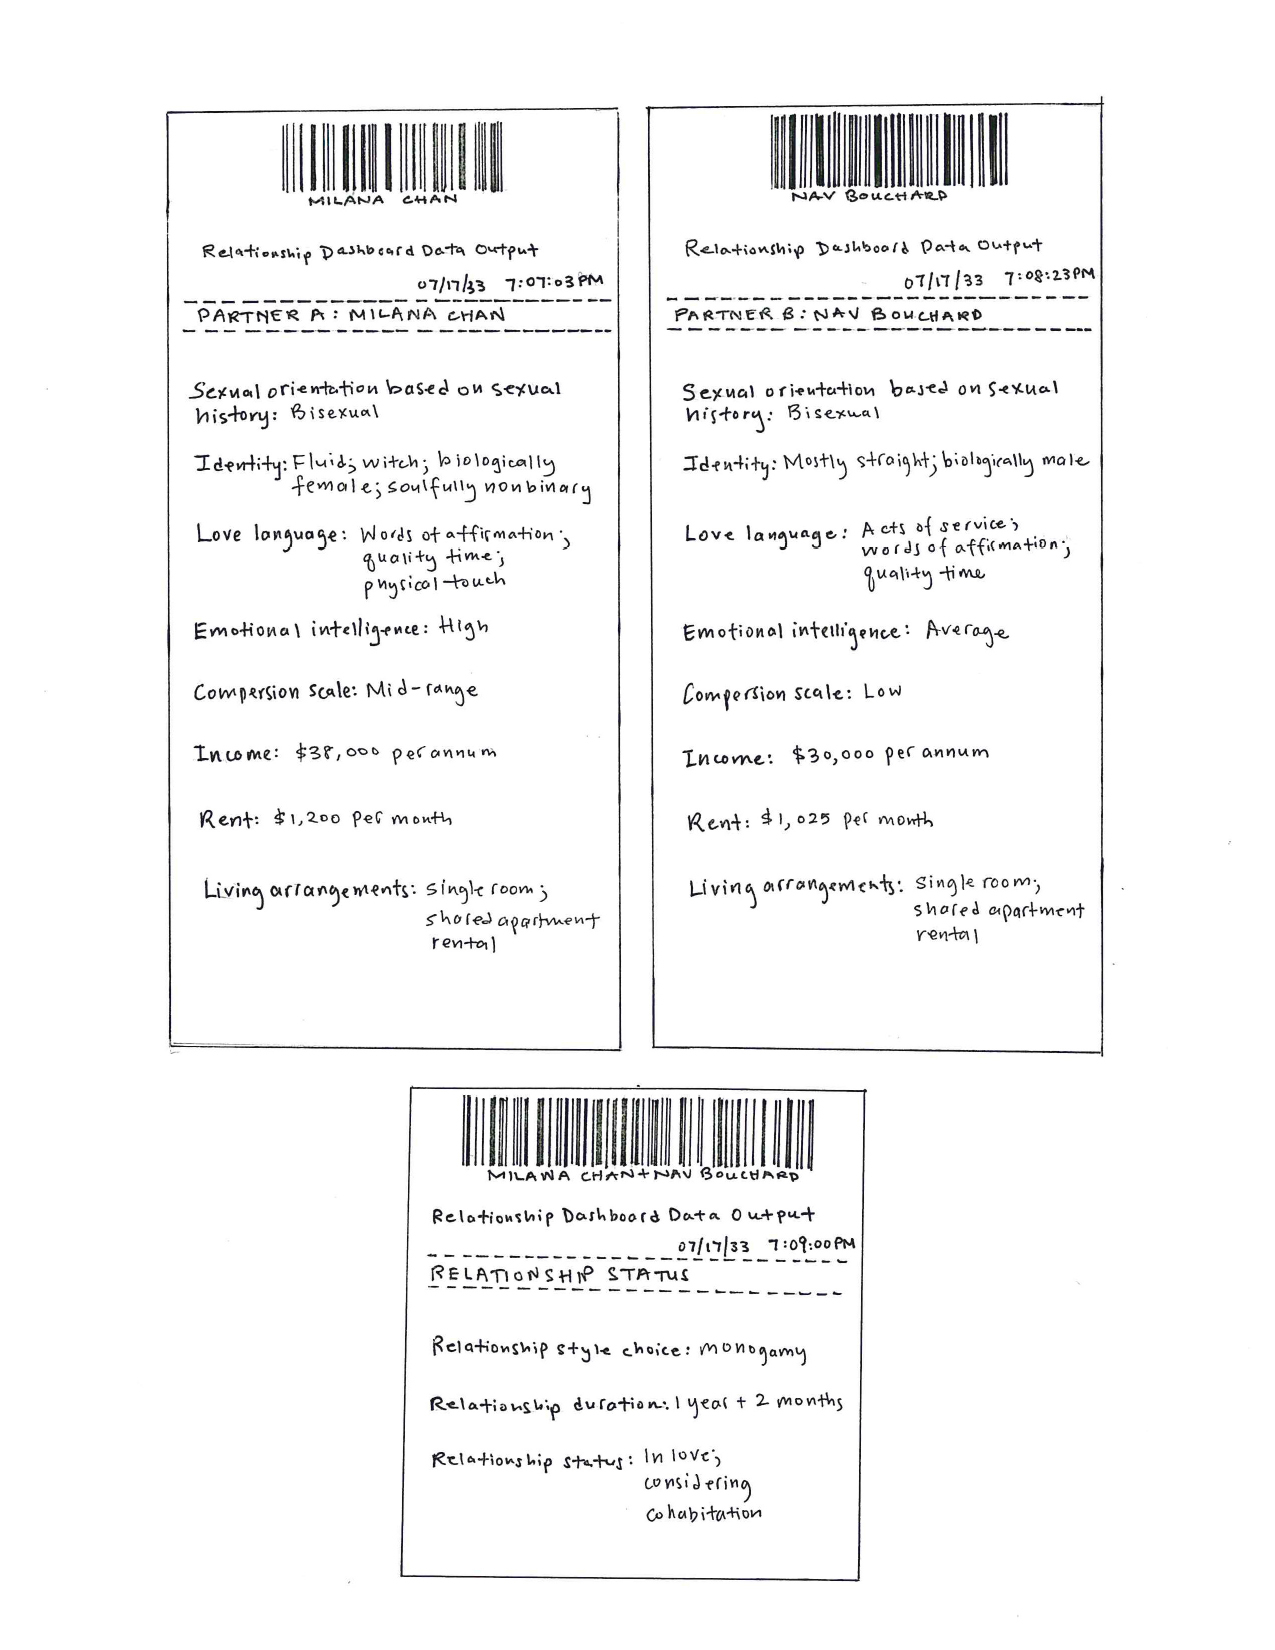 MILANA CHAN
Relationship Dashboard Data Output
07/17/33 7:07:03PM
PARTNER A: MILANA CHAN
Sexual orientation based on sexual
history: Bisexual
Identity: Fluid; witch; biologically
female; soulfully nonbinary
Love language: Words of affirmation;
quality time;
physical touch
Emotional intelligence: High
Compersion scale: Mid-range
Income: $38,000 per annum
Rent: $1,200 per month
Living arrangements: single room;
shared apartment
rental
NAV BOUCHARD
Relationship Dashboard Data Output
07/17/33 7:08:23PM
PARTNER B: NAV BOUCHARD
Sexual orientation based on sexual
history: Bisexual
Identity: Mostly straight; biologically male
Love language: Acts of service;
words of affirmation;
quality time
Emotional intelligence: Average
Compersion scale: Low
Income: $30,000 per annum
Rent: $1,025 per month
Living arrangements: single room;
shared apartment
rental
MILANA CHAN+NAV BOUCHARD
Relationship Dashboard Data Output
07/17/33 7:09:00PM
RELATIONSHIP STATUS
Relationship style choice: monogamy
Relationship duration: 1 year + 2 months
Relationship status: In love;
considering
cohabitation